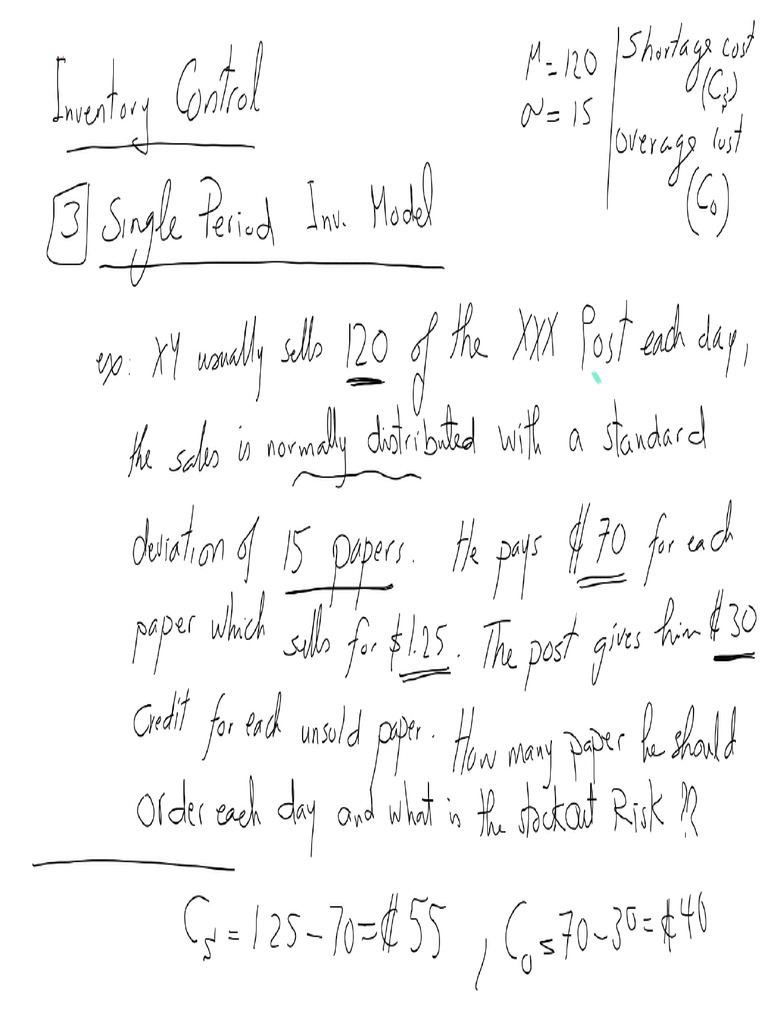 Inventory Control
μ = 120
σ = 15
Shortage cost
(Cs)
overage cost
(Co)
3 Single Period Inv. Model
ex: XY usually sells 120 of the XXX Post each day,
the sales is normally distributed with a standard
deviation of 15 papers. He pays ¢70 for each
paper which sells for $1.25. The post gives him ¢30
Credit for each unsold paper. How many paper he should
order each day and what is the stockout Risk ??
Cs = 125 - 70 = ¢55 , Co = 70 - 30 = ¢40